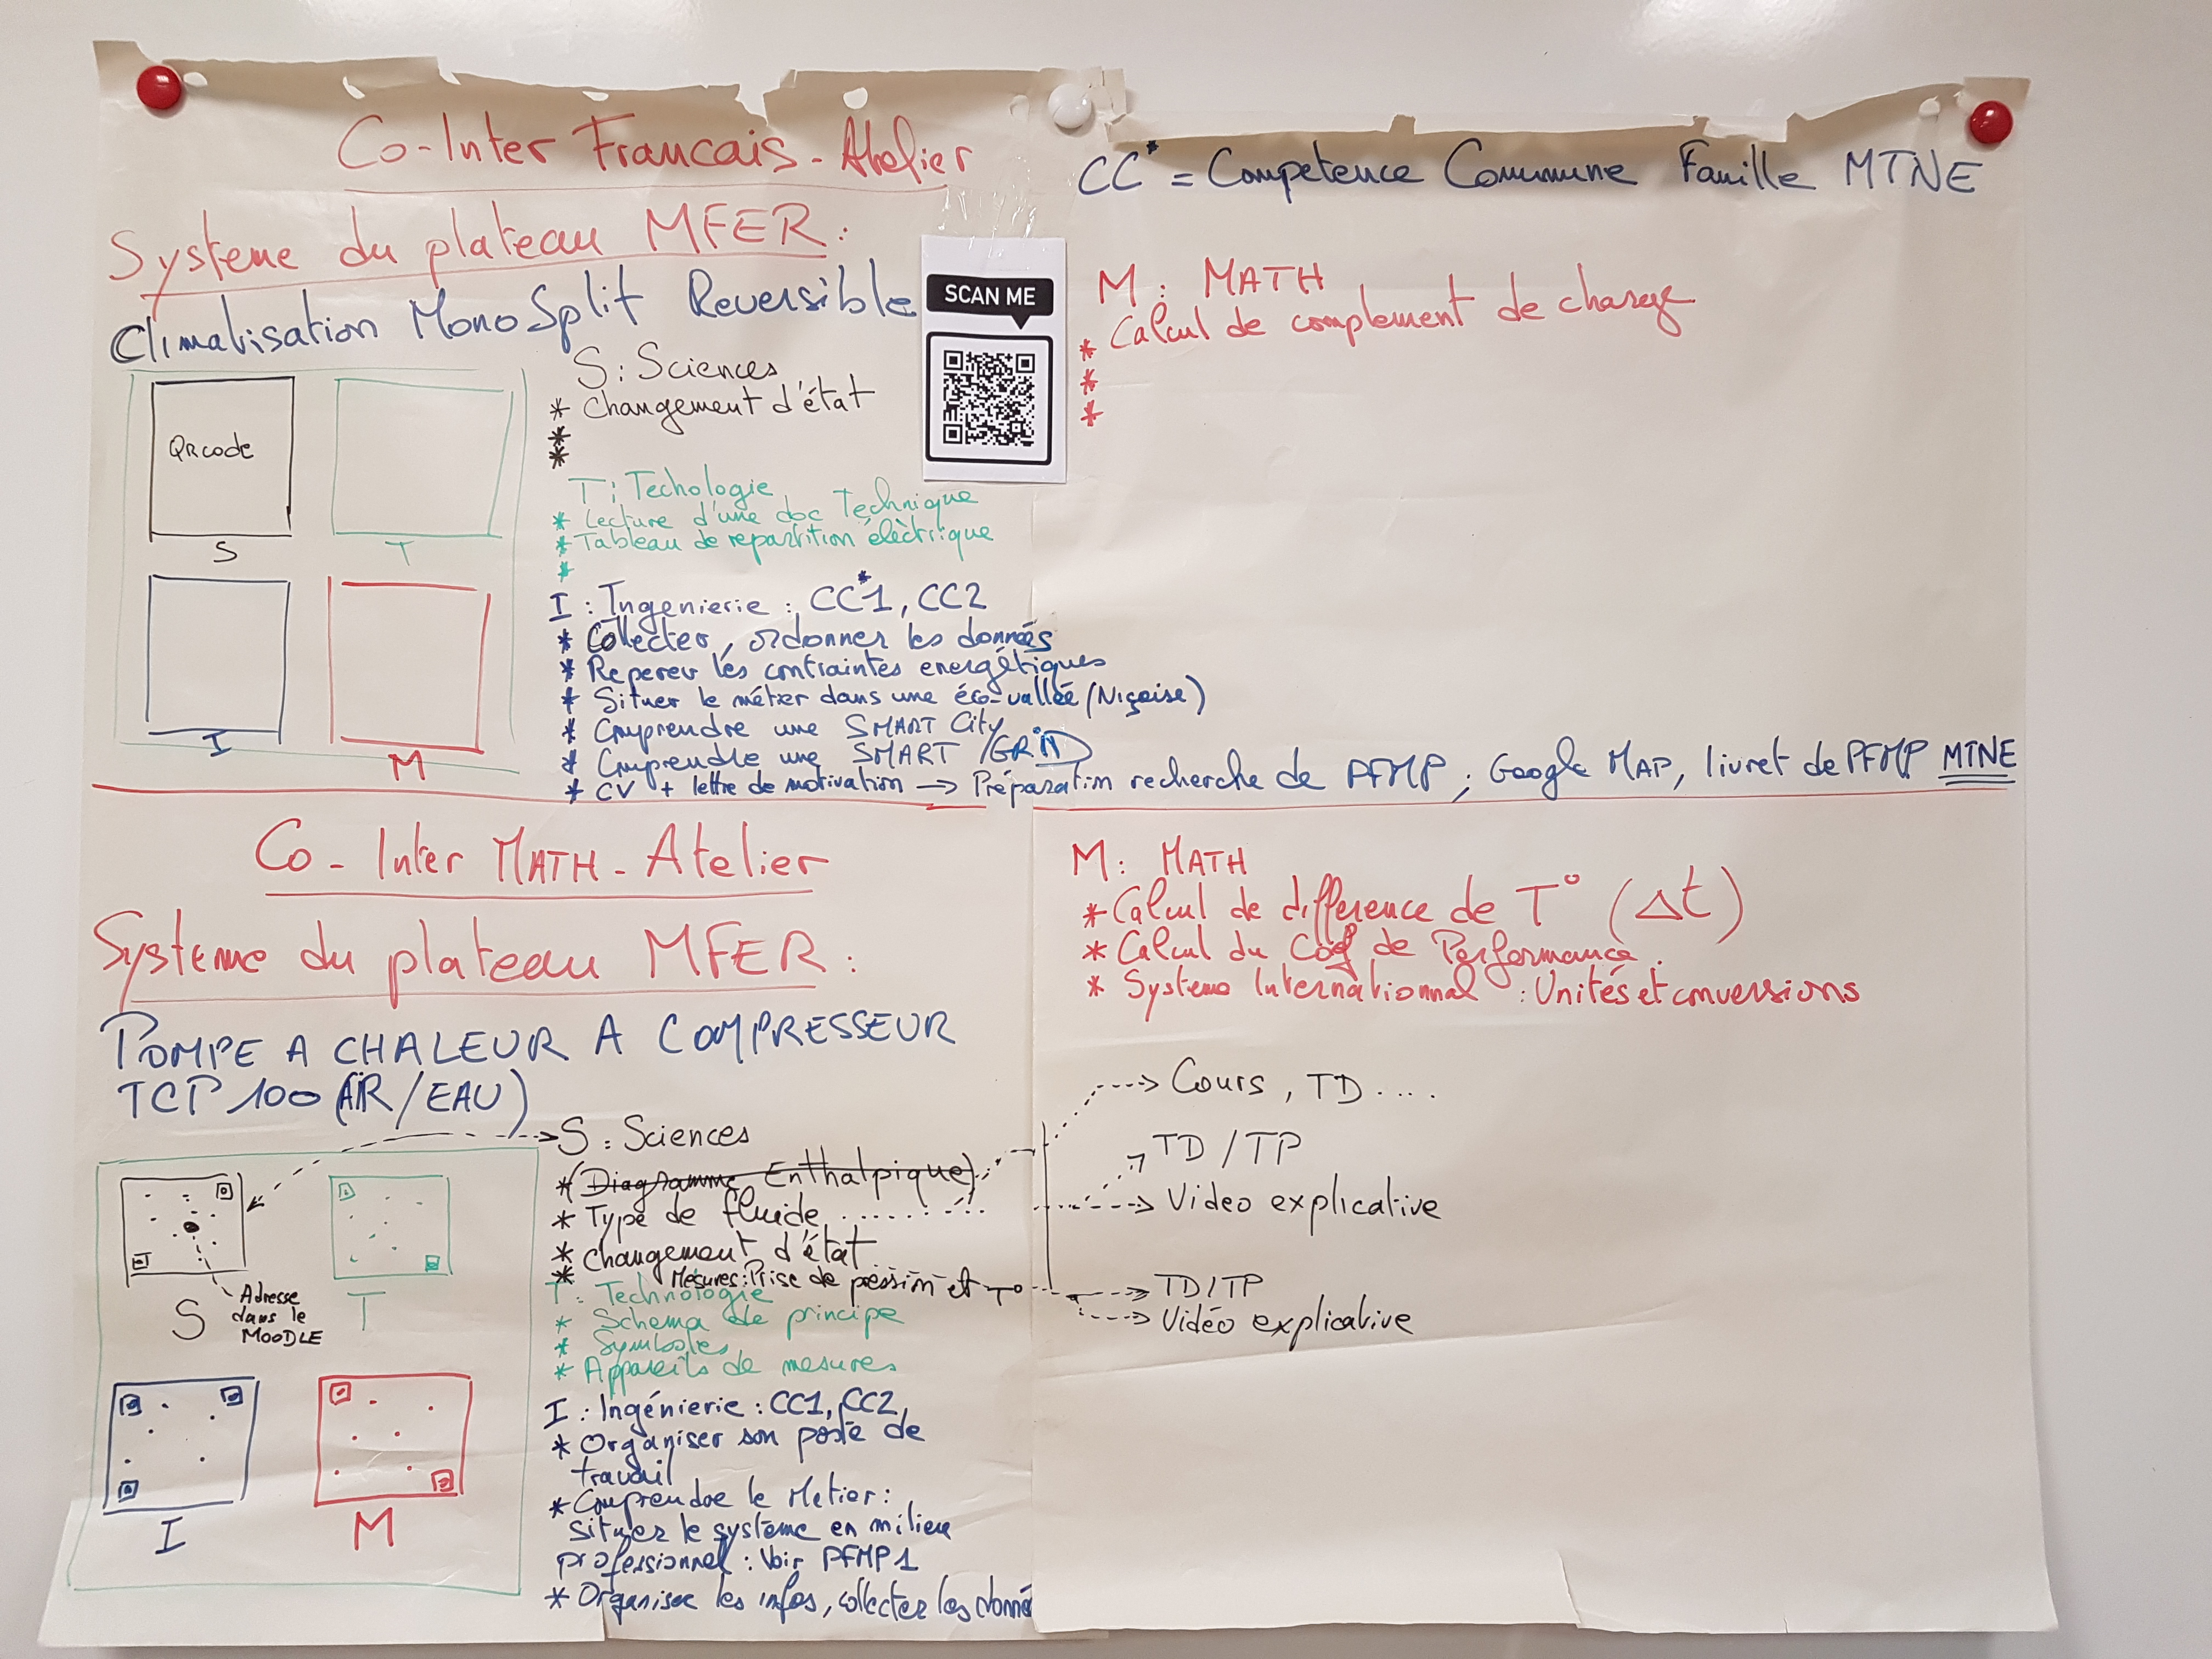 Co-Inter Francais - Atelier
Systeme du plateau MFER :
Climatisation MonoSplit Reversible
QRcode
S
T
I
M
S : Sciences
* Changement d'état
*
*
T : Techologie
* Lecture d'une doc Technique
* Tableau de repartition électrique
*
I : Ingenierie : CC*1, CC2
* Collecter, ordonner les données
* Reperer les contraintes energétiques
* Situer le métier dans une éco-vallée (Niçoise)
* Comprendre une SMART City
* Comprendre une SMART /GRiD
* CV + lettre de motivation → Préparation recherche de PFMP ; Google MAP, livret de PFMP MTNE
SCAN ME
CC* = Competence Commune Famille MTNE
M : MATH
* Calcul de complement de charge
*
*
Co - Inter MATH - Atelier
Systeme du plateau MFER :
POMPE A CHALEUR A COMPRESSEUR
TCP 100 (AIR/EAU)
S
Adresse
dans le
MOODLE
T
I
M
S : Sciences
* (Diagramme Enthalpique)
* Type de fluide
* Changement d'état
* Mesures : Prise de pression et T°
T : Technologie
* Schema de principe
* Symboles
* Appareils de mesures
I : Ingénierie : CC1, CC2
* Organiser son poste de
travail
* Comprendre le Metier :
situer le système en milieu
professionnel : Voir PFMP1
* Organiser les infos, collecter les donné
M : MATH
* Calcul de difference de T° (Δt)
* Calcul du Coef de Performance.
* Systeme Internationnal : Unités et conversions
Cours, TD ....
TD / TP
Video explicative
TD / TP
Vidéo explicative